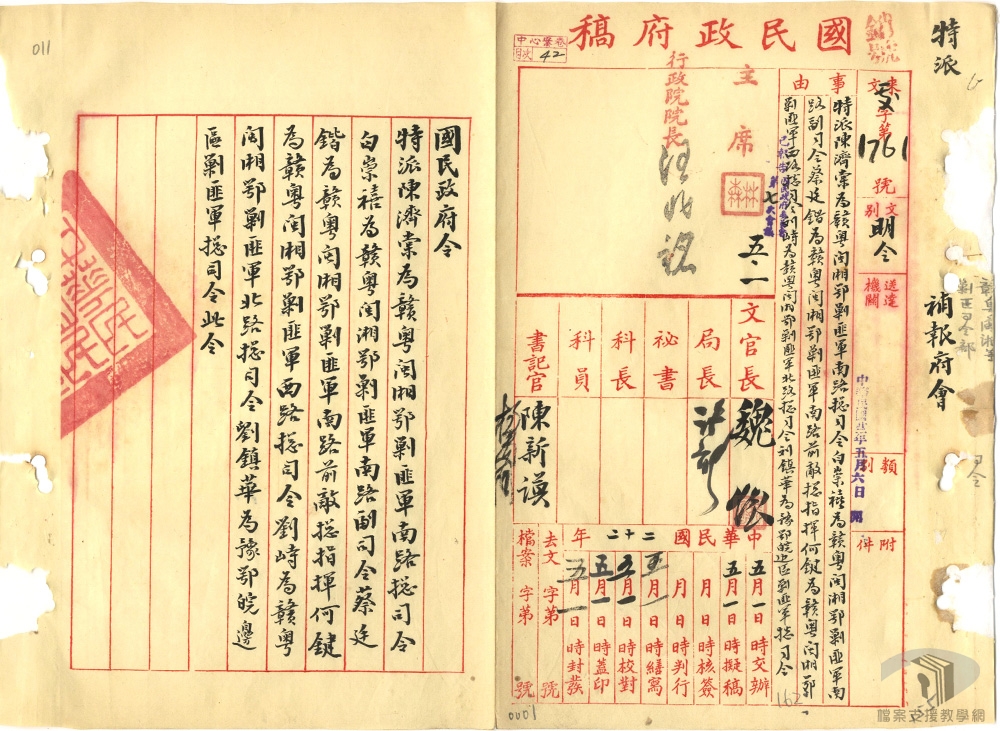 特派
補報府會
銷號
國民政府稿
中心檔卷
目次 42
來文 文字第1761號
文別 明令
送達機關
類別
附件
中華民國廿二年五月六日
事由
特派陳濟棠為贛粵閩湘鄂剿匪軍南路總司令白崇禧為贛粵閩湘鄂剿匪軍南
路副司令蔡廷鍇為贛粵閩湘鄂剿匪軍南路前敵總指揮何鍵為贛粵閩湘鄂
剿匪軍西路總司令劉峙為贛粵閩湘鄂剿匪軍北路總司令刘鎮華為豫鄂皖边區剿匪軍總司令
主席
五一
行政院院長
汪兆銘
文官長 魏懷
局長 許靜
秘書
科長
科員
書記官 陳新謨
中華民國二十二年
五月一日時交辦
五月一日時擬稿
月日時核簽
月日時判行
五月一日時繕寫
五月一日時校對
五月一日時蓋印
五月一日時封發
去文 字第 號
檔案 字第 號
162
0001
檔案支援教學網
011
國民政府令
特派陳濟棠為贛粵閩湘鄂剿匪軍南路總司令
白崇禧為贛粵閩湘鄂剿匪軍南路副司令蔡廷
鍇為贛粵閩湘鄂剿匪軍南路前敵總指揮何鍵
為贛粵閩湘鄂剿匪軍西路總司令劉峙為贛粵
閩湘鄂剿匪軍北路總司令劉鎮華為豫鄂皖邊
區剿匪軍總司令此令